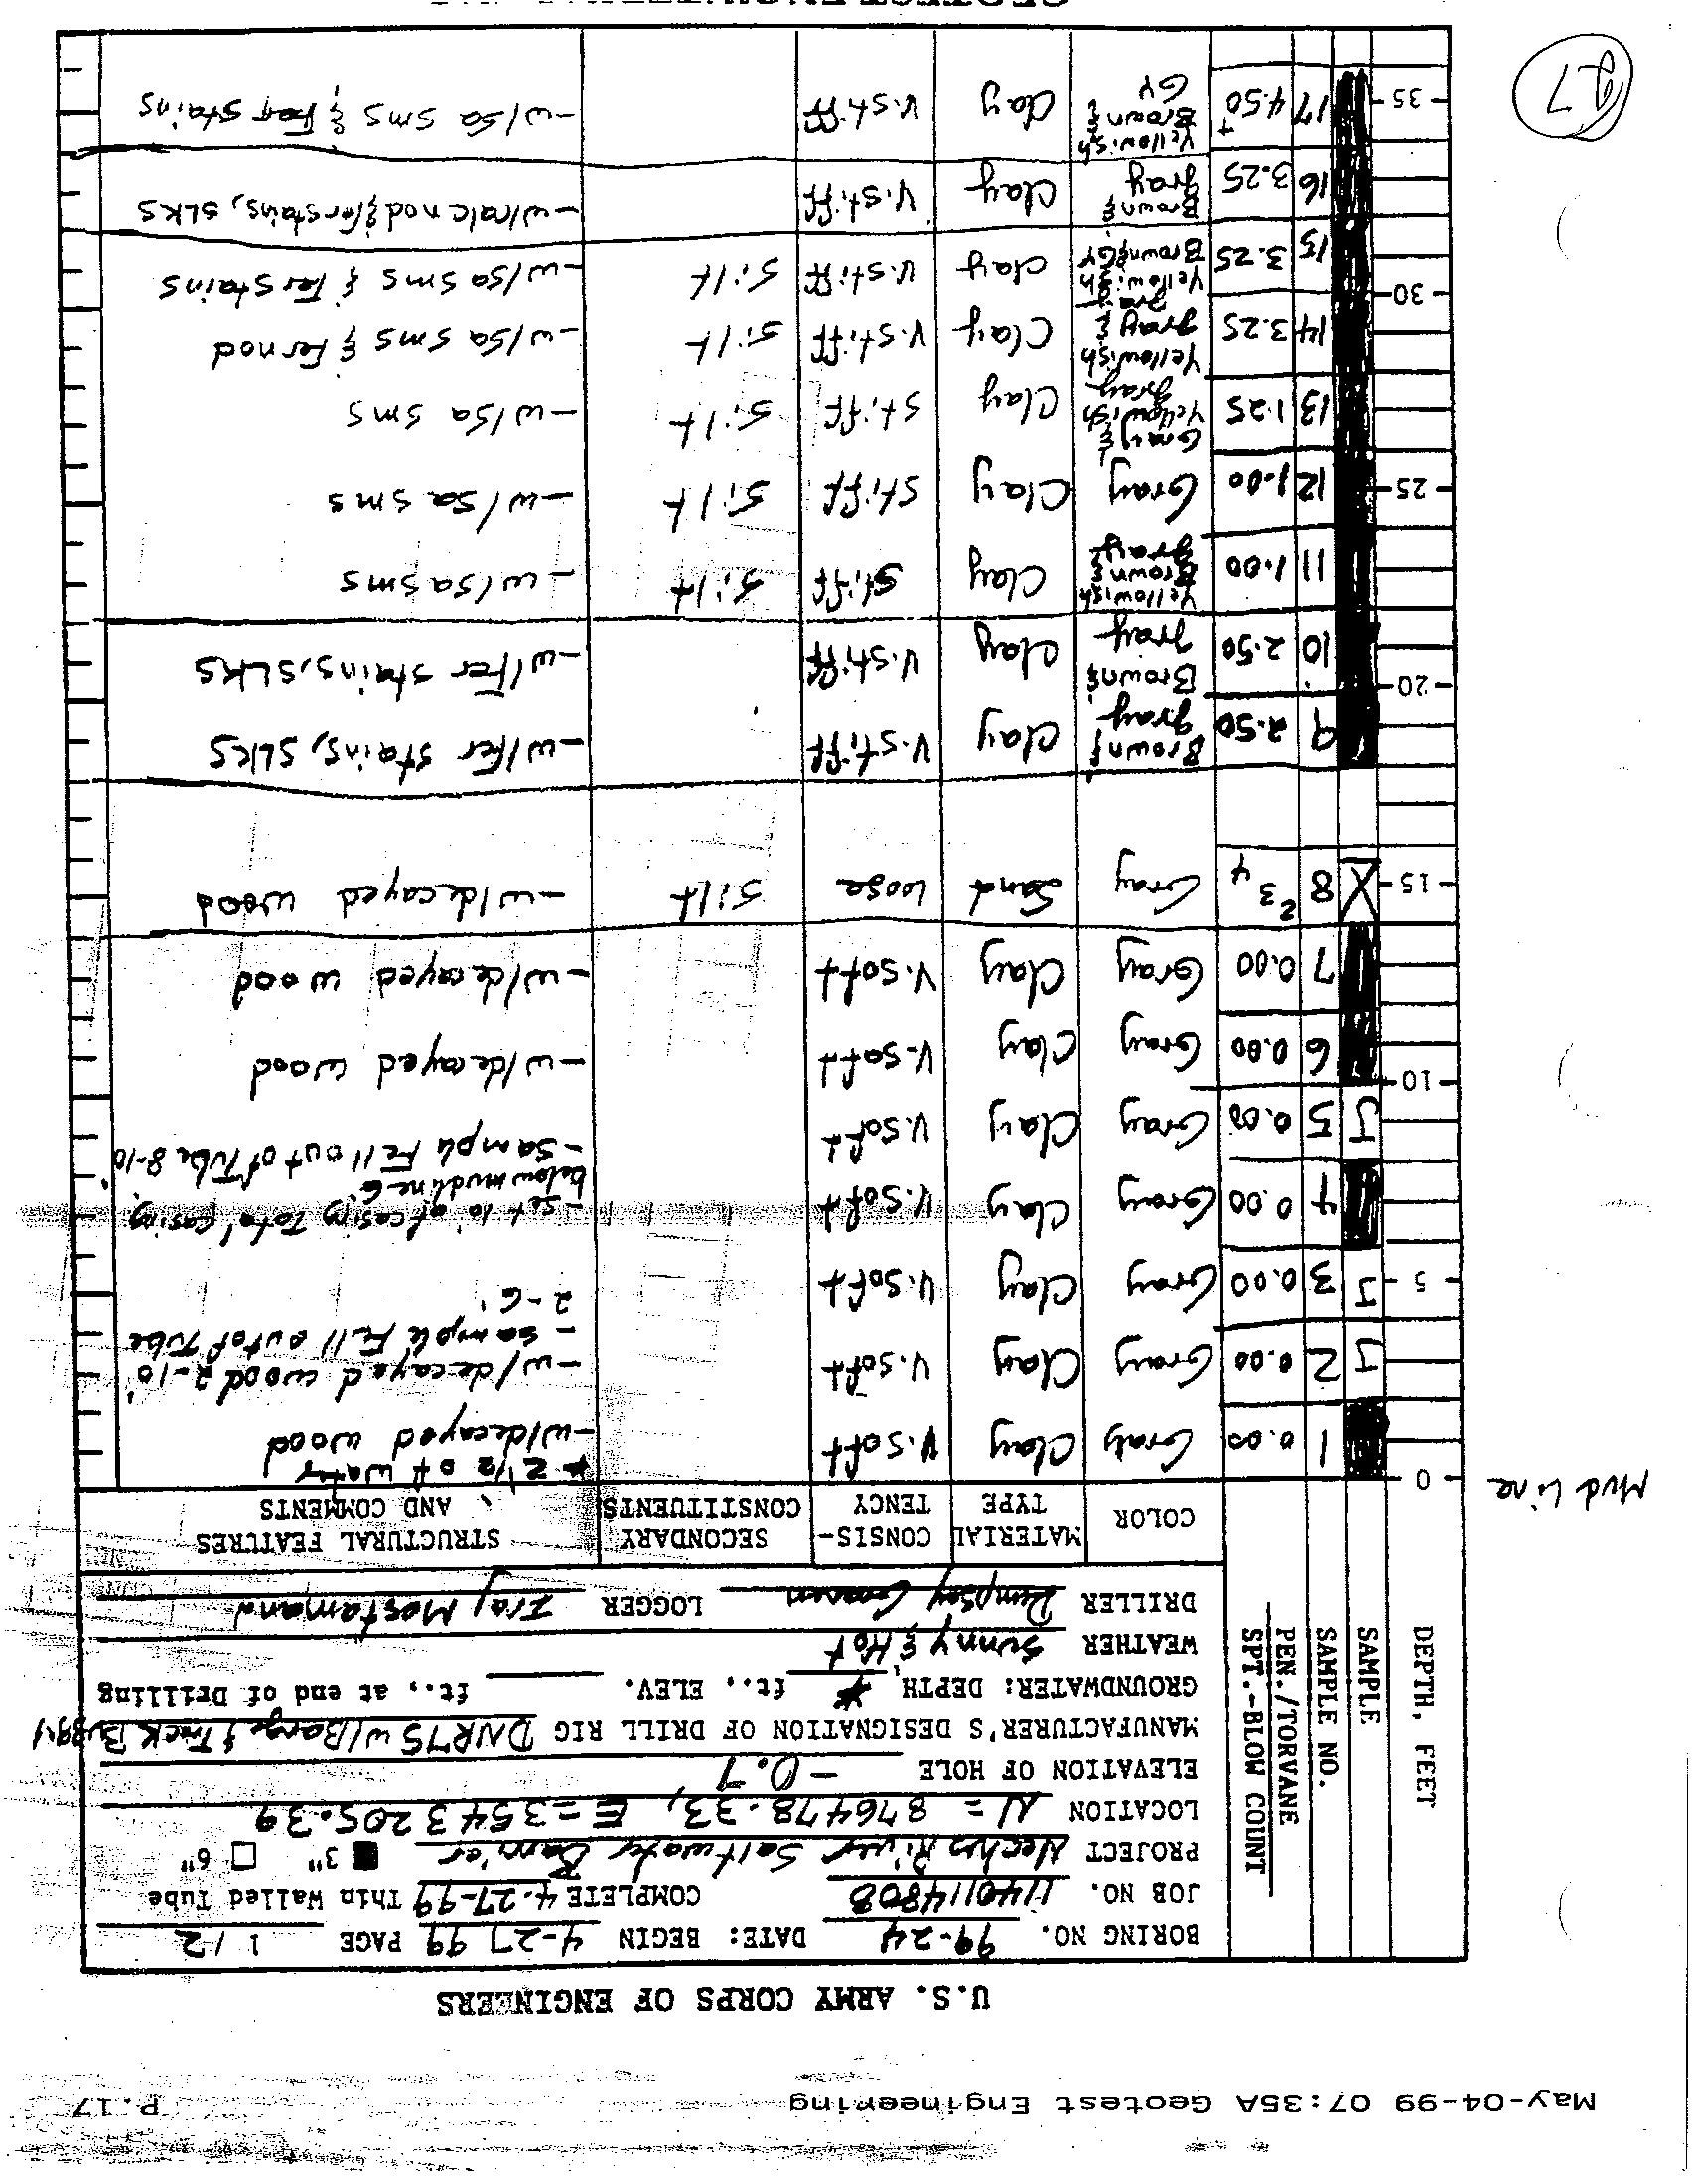 May-04-99 07:35A Geotest Engineering P.17
U.S. ARMY CORPS OF ENGINEERS
BORING NO. 99-24 DATE: BEGIN 4-27 99 PAGE 1 / 2
JOB NO. 1140114808 COMPLETE 4-27-99 Thin Walled Tube
PROJECT Neches River Saltwater Barrier 3" 6"
LOCATION N = 876478.33, E = 3543205.39
ELEVATION OF HOLE -0.7
MANUFACTURER'S DESIGNATION OF DRILL RIG DNR75 w/Barge & Track Buggy
GROUNDWATER: DEPTH * ft., ELEV. ft., at end of Drilling
WEATHER Sunny & Hot
DRILLER LOGGER Iraj Mostamand
DEPTH, FEET
SAMPLE
SAMPLE NO.
PEN./TORVANE
SPT.-BLOW COUNT
COLOR MATERIAL TYPE CONSIS-TENCY SECONDARY CONSTITUENTS STRUCTURAL FEATURES AND COMMENTS
Mud Line 0
* 2 1/2 of water
1 0.00 Gray Clay V.Soft -w/decayed wood
J 2 0.00 Gray Clay V.Soft -w/decayed wood 2-10'
- sample Fell out of Tube
2-6'
5 J 3 0.00 Gray Clay V.Soft
4 0.00 Gray Clay V.Soft -set 10' of casing Total casing
below mudline 6'
J 5 0.00 Gray Clay V.Soft -sample Fell out of Tube 8-10'
10
6 0.00 Gray Clay V.Soft -w/decayed wood
7 0.00 Gray Clay V.Soft -w/decayed wood
15 X 8 2 3 4 Gray Sand Loose Silt -w/decayed wood
9 2.50 Brown & gray Clay V.Stiff -w/fer stains, SLKS
20
10 2.50 Brown & gray Clay V.Stiff -w/Fer stains, SLKS
11 1.00 Yellowish Brown & gray Clay Stiff Silt -w/sa sms
25 12 1.00 Gray Clay Stiff Silt -w/sa sms
13 1.25 Gray & Yellowish gray Clay Stiff Silt -w/sa sms
14 3.25 Yellowish gray & gray Clay V.Stiff Silt -w/sa sms & fer nod
30
15 3.25 Yellowish Brown & GY Clay V.Stiff Silt -w/sa sms & Fer stains
16 3.25 Brown & gray Clay V.Stiff -w/calc nod & fer stains, SLKS
35 17 4.50+ Yellowish Brown & GY Clay V.Stiff -w/sa sms & Fer stains
27